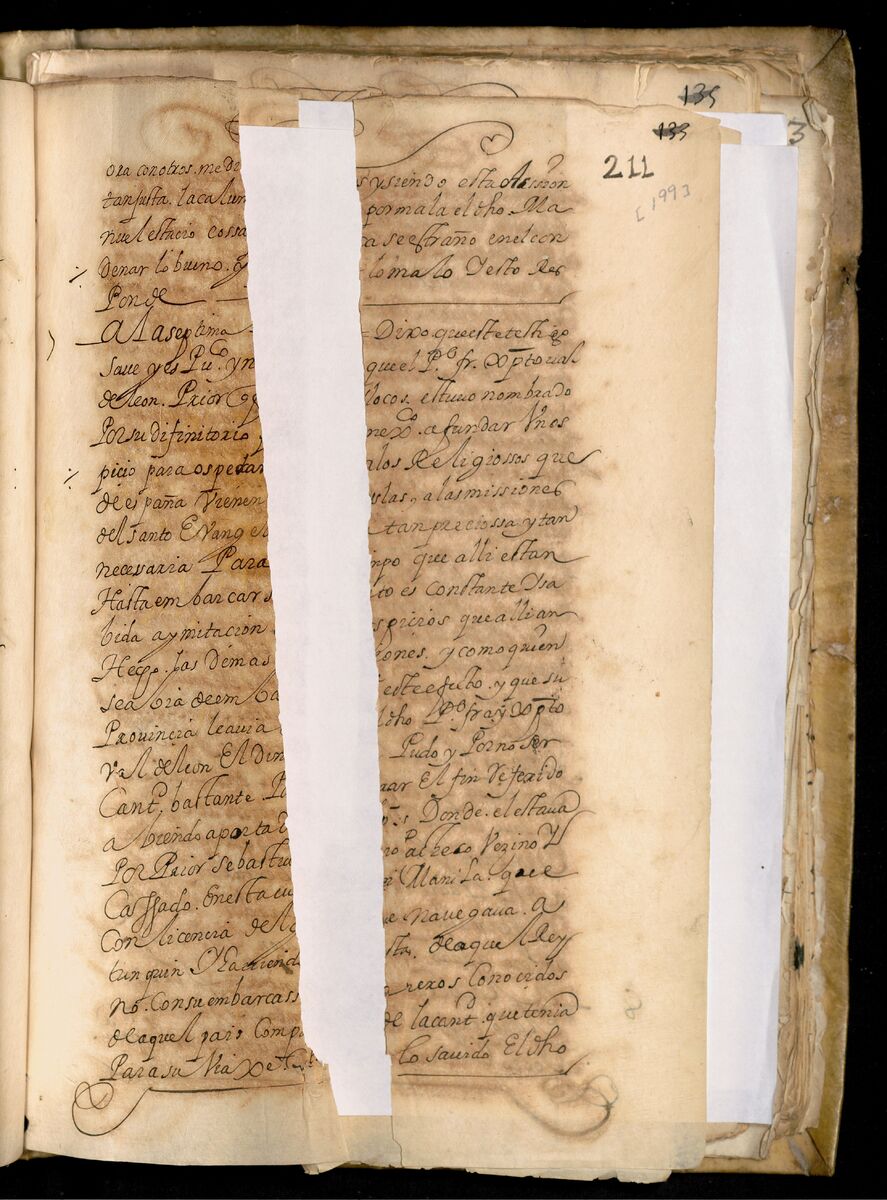 135
133
3
211
[199]
ora con otros. medi s ysiendo esta Assion
tan justa. la calun por mala el dho Ma
nuel estacio cossa a se estraño en el con
denar lo bueno. y lo malo Y esto Res
Ponde
A la septima = Dixo que este testigo
save y es Puco. y n que el Pe. fr. Xptoval
de leon. Prior q locos. estuvo nombrado
Por su difinitorio y nexco. a fundar Vn os
picio para ospedar a los Religiossos que
de españa Vienen yslas, a las missiones
del santo Evange tan preciossa y tan
necessaria Para mpo que alli estan
Hasta embarcars to es constante Y sa
bida a ymitacion spicios que alli an
Hecho. las Demas iones. y como quien
se a bia de emba este efecto. y que su
Provincia le avia dho Pe. fray Xpto
val de leon El Din Pudo y Por no ser
Cant. bastante. P uar El fin Referido
abiendo aporta s Donde. el estava
Por Prior sebastia ro Pacheco Vezino Y
Cassado. en esta ciu Manila. que
Con licencia de l e navegava. a
tunquin Y Haciend sta. de aquel Rey
no. Con su embarcass arexos Conocidos
de aquel pais Comp de la cant. que tenia
Para su Viaxe. lo savido El dho